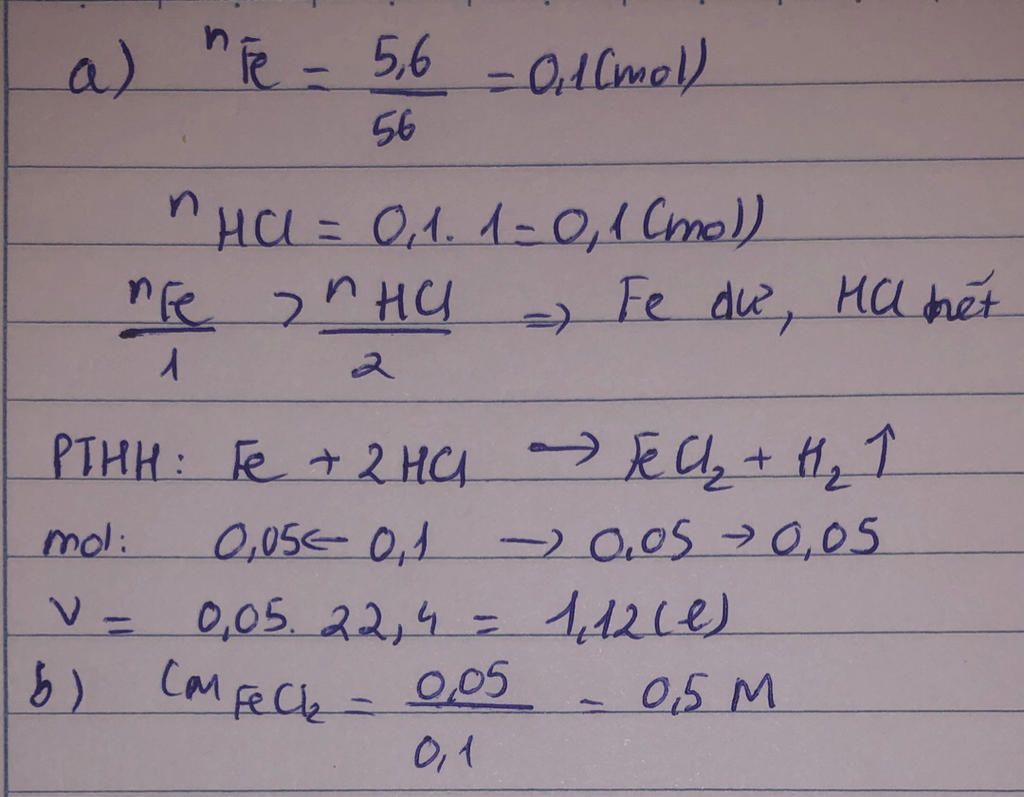 a) nFe = 5,6/56 = 0,1 (mol)
nHCl = 0,1. 1 = 0,1 (mol)
nFe/1 > nHCl/2 => Fe dư, HCl hết
PTHH: Fe + 2HCl → FeCl₂ + H₂ ↑
mol: 0,05 ← 0,1 → 0,05 → 0,05
V = 0,05. 22,4 = 1,12 (l)
b) CM FeCl₂ = 0,05/0,1 = 0,5 M